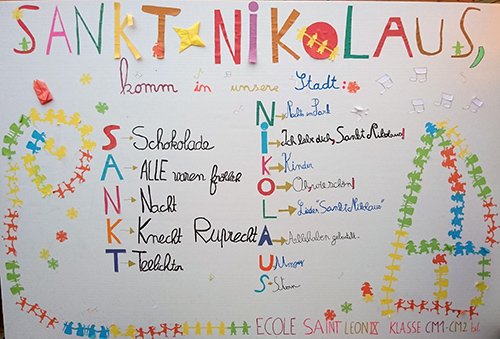 SANKT NIKOLAUS,
komm in unsere Stadt:
SANKT
Schokolade
ALLE waren fröhlich
Nacht
Knecht Ruprecht
Teelichter
NIKOLAUS
Ich liebe dich, Sankt Nikolaus!
Kinder
Oh, wie schön!
Lieder "Sankt Nikolaus"
Alle haben
Stern
ECOLE SAINT LEON IX KLASSE CM1-CM2 bil.